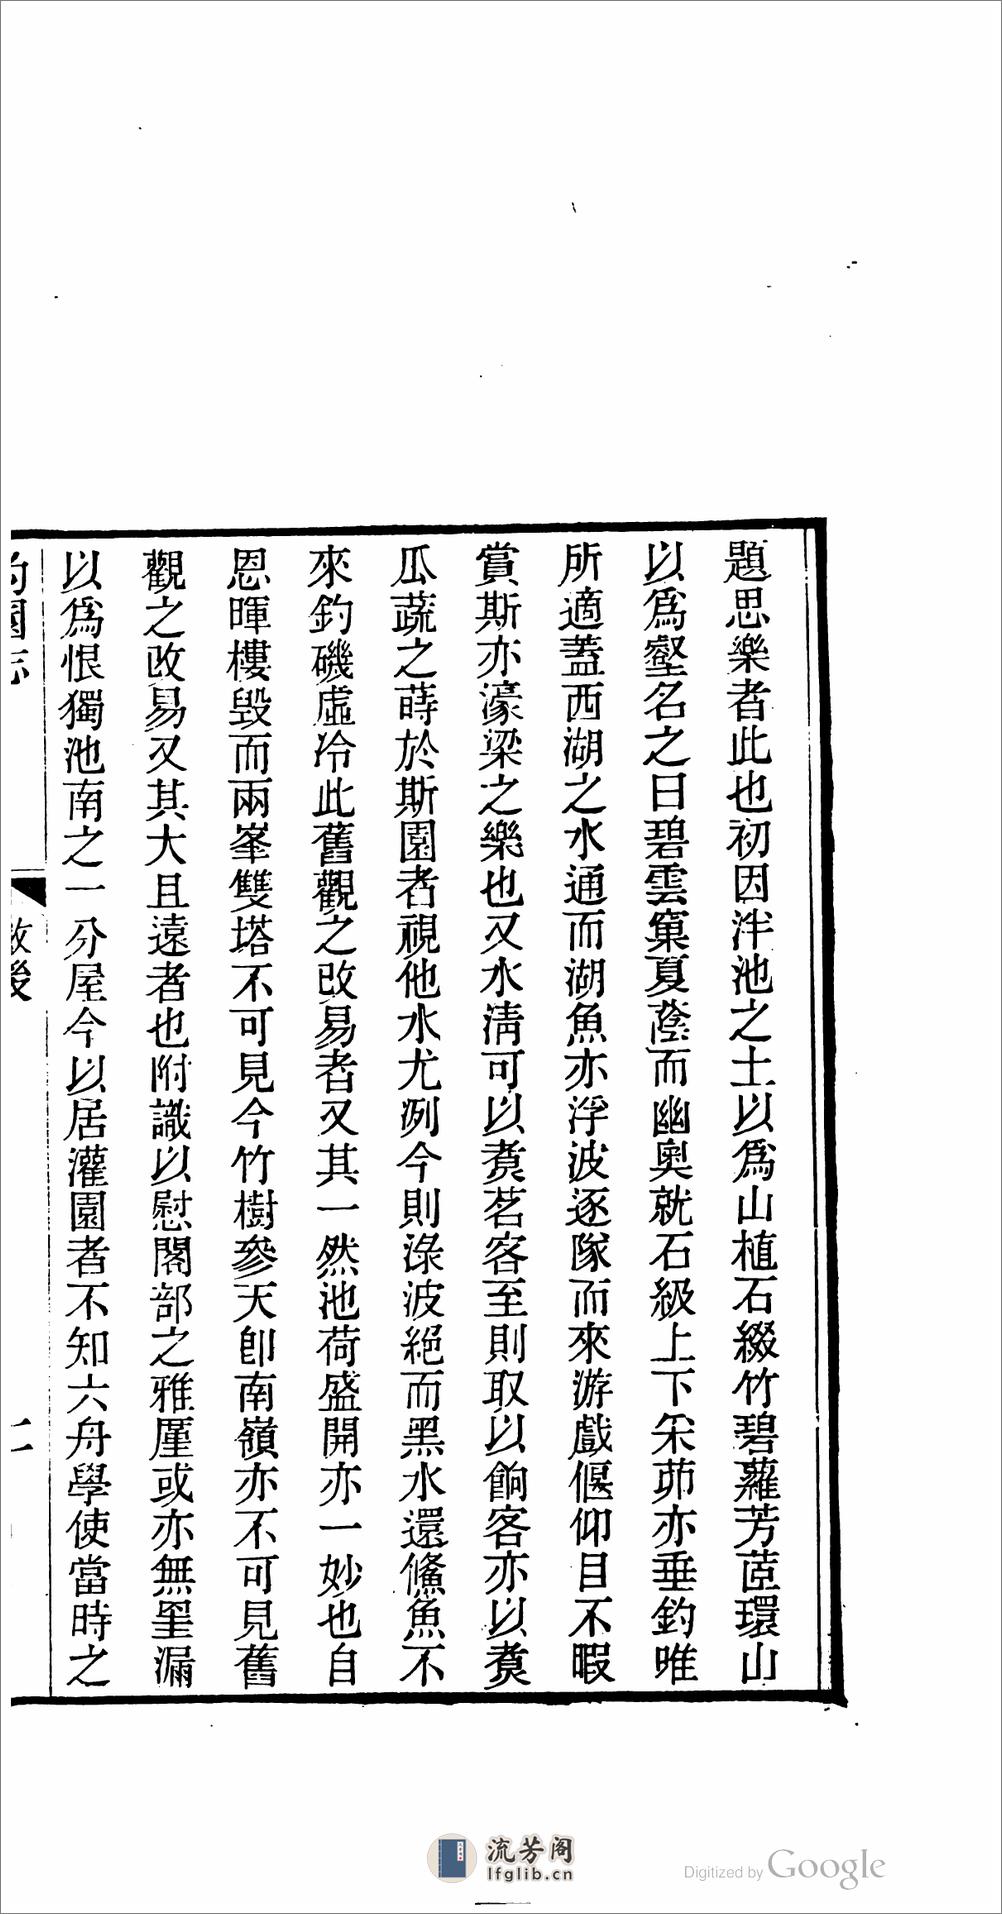 題思樂者此也初因泮池之土以爲山植石綴竹碧蘿芳茝環山
以爲壑名之曰碧雲窠夏蔭而幽奥就石級上下宋茆亦垂釣唯
所適蓋西湖之水通而湖魚亦浮波逐隊而來游戲偃仰目不暇
賞斯亦濠梁之樂也又水淸可以煑茗客至則取以餉客亦以煑
瓜蔬之蒔於斯園者視他水尤洌今則淥波絕而黑水還鯈魚不
來釣磯虛冷此舊觀之改易者又其一然池荷盛開亦一妙也自
恩暉樓毀而兩峯雙塔不可見今竹樹參天卽南嶺亦不可見舊
觀之改易又其大且遠者也附識以慰閣部之雅厪或亦無罣漏
以爲恨獨池南之一分屋今以居灌園者不知六舟學使當時之
勺園志
敘後
二
流芳阁
lfglib.cn
Digitized by Google